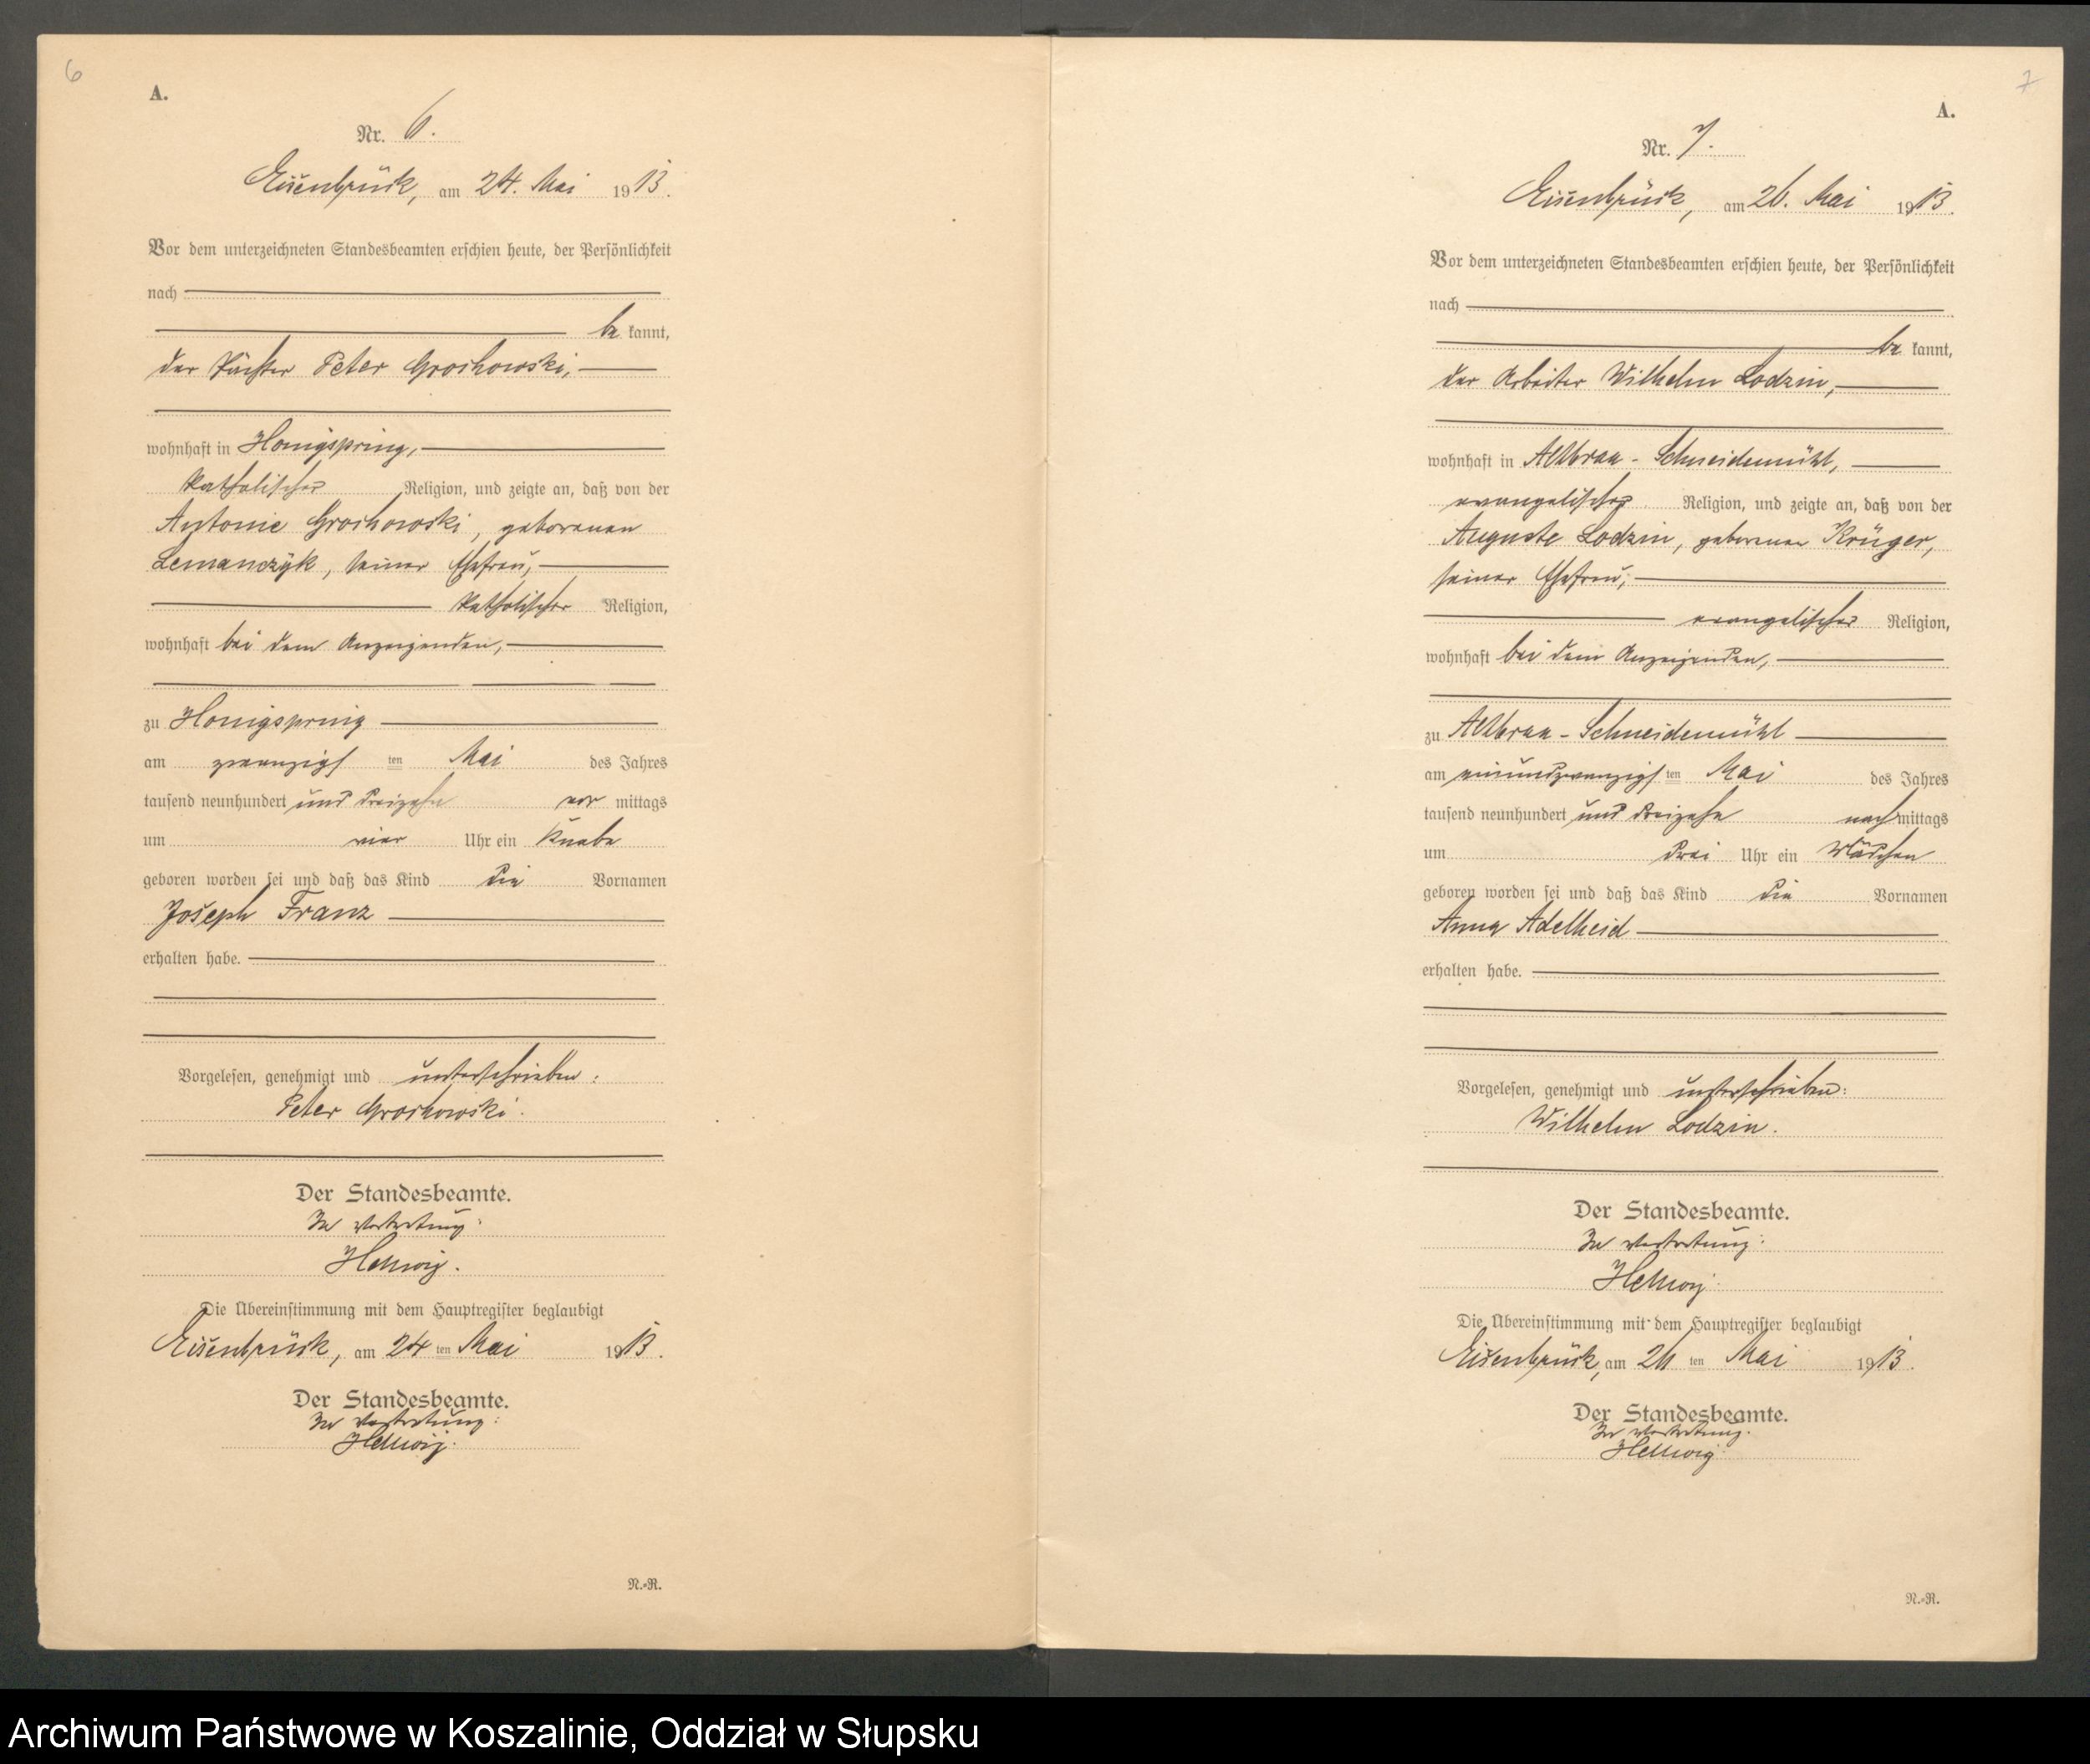 6
A.
Nr. 6.
Eisenbrück, am 24. Mai 1913.
Vor dem unterzeichneten Standesbeamten erschien heute, der Persönlichkeit
nach
be kannt,
der Pächter Peter Grochowski,
wohnhaft in Honigspring,
katholischer Religion, und zeigte an, daß von der
Antonie Grochowski, geborenen
Lemanczyk, seiner Ehefrau,
katholischer Religion,
wohnhaft bei dem Anzeigenden,
zu Honigspring
am zwanzigs ten Mai des Jahres
tausend neunhundert und dreizehn vor mittags
um vier Uhr ein Knabe
geboren worden sei und daß das Kind die Vornamen
Joseph Franz
erhalten habe.
Vorgelesen, genehmigt und unterschrieben:
Peter Grochowski.
Der Standesbeamte.
In Vertretung:
Hellwig.
Die Übereinstimmung mit dem Hauptregister beglaubigt
Eisenbrück, am 24 ten Mai 1913.
Der Standesbeamte.
In Vertretung:
Hellwig.
N.-R.
7
A.
Nr. 7.
Eisenbrück, am 26. Mai 1913.
Vor dem unterzeichneten Standesbeamten erschien heute, der Persönlichkeit
nach
be kannt,
der Arbeiter Wilhelm Lodzin,
wohnhaft in Altbraa - Schneidemühl,
evangelischer Religion, und zeigte an, daß von der
Auguste Lodzin, geborenen Krüger,
seiner Ehefrau,
evangelischer Religion,
wohnhaft bei dem Anzeigenden,
zu Altbraa - Schneidemühl
am einundzwanzigs ten Mai des Jahres
tausend neunhundert und dreizehn nach mittags
um drei Uhr ein Mädchen
geboren worden sei und daß das Kind die Vornamen
Anna Adelheid
erhalten habe.
Vorgelesen, genehmigt und unterschrieben:
Wilhelm Lodzin.
Der Standesbeamte.
In Vertretung:
Hellwig.
Die Übereinstimmung mit dem Hauptregister beglaubigt
Eisenbrück, am 26 ten Mai 1913.
Der Standesbeamte.
In Vertretung.
Hellwig
N.-R.
Archiwum Państwowe w Koszalinie, Oddział w Słupsku